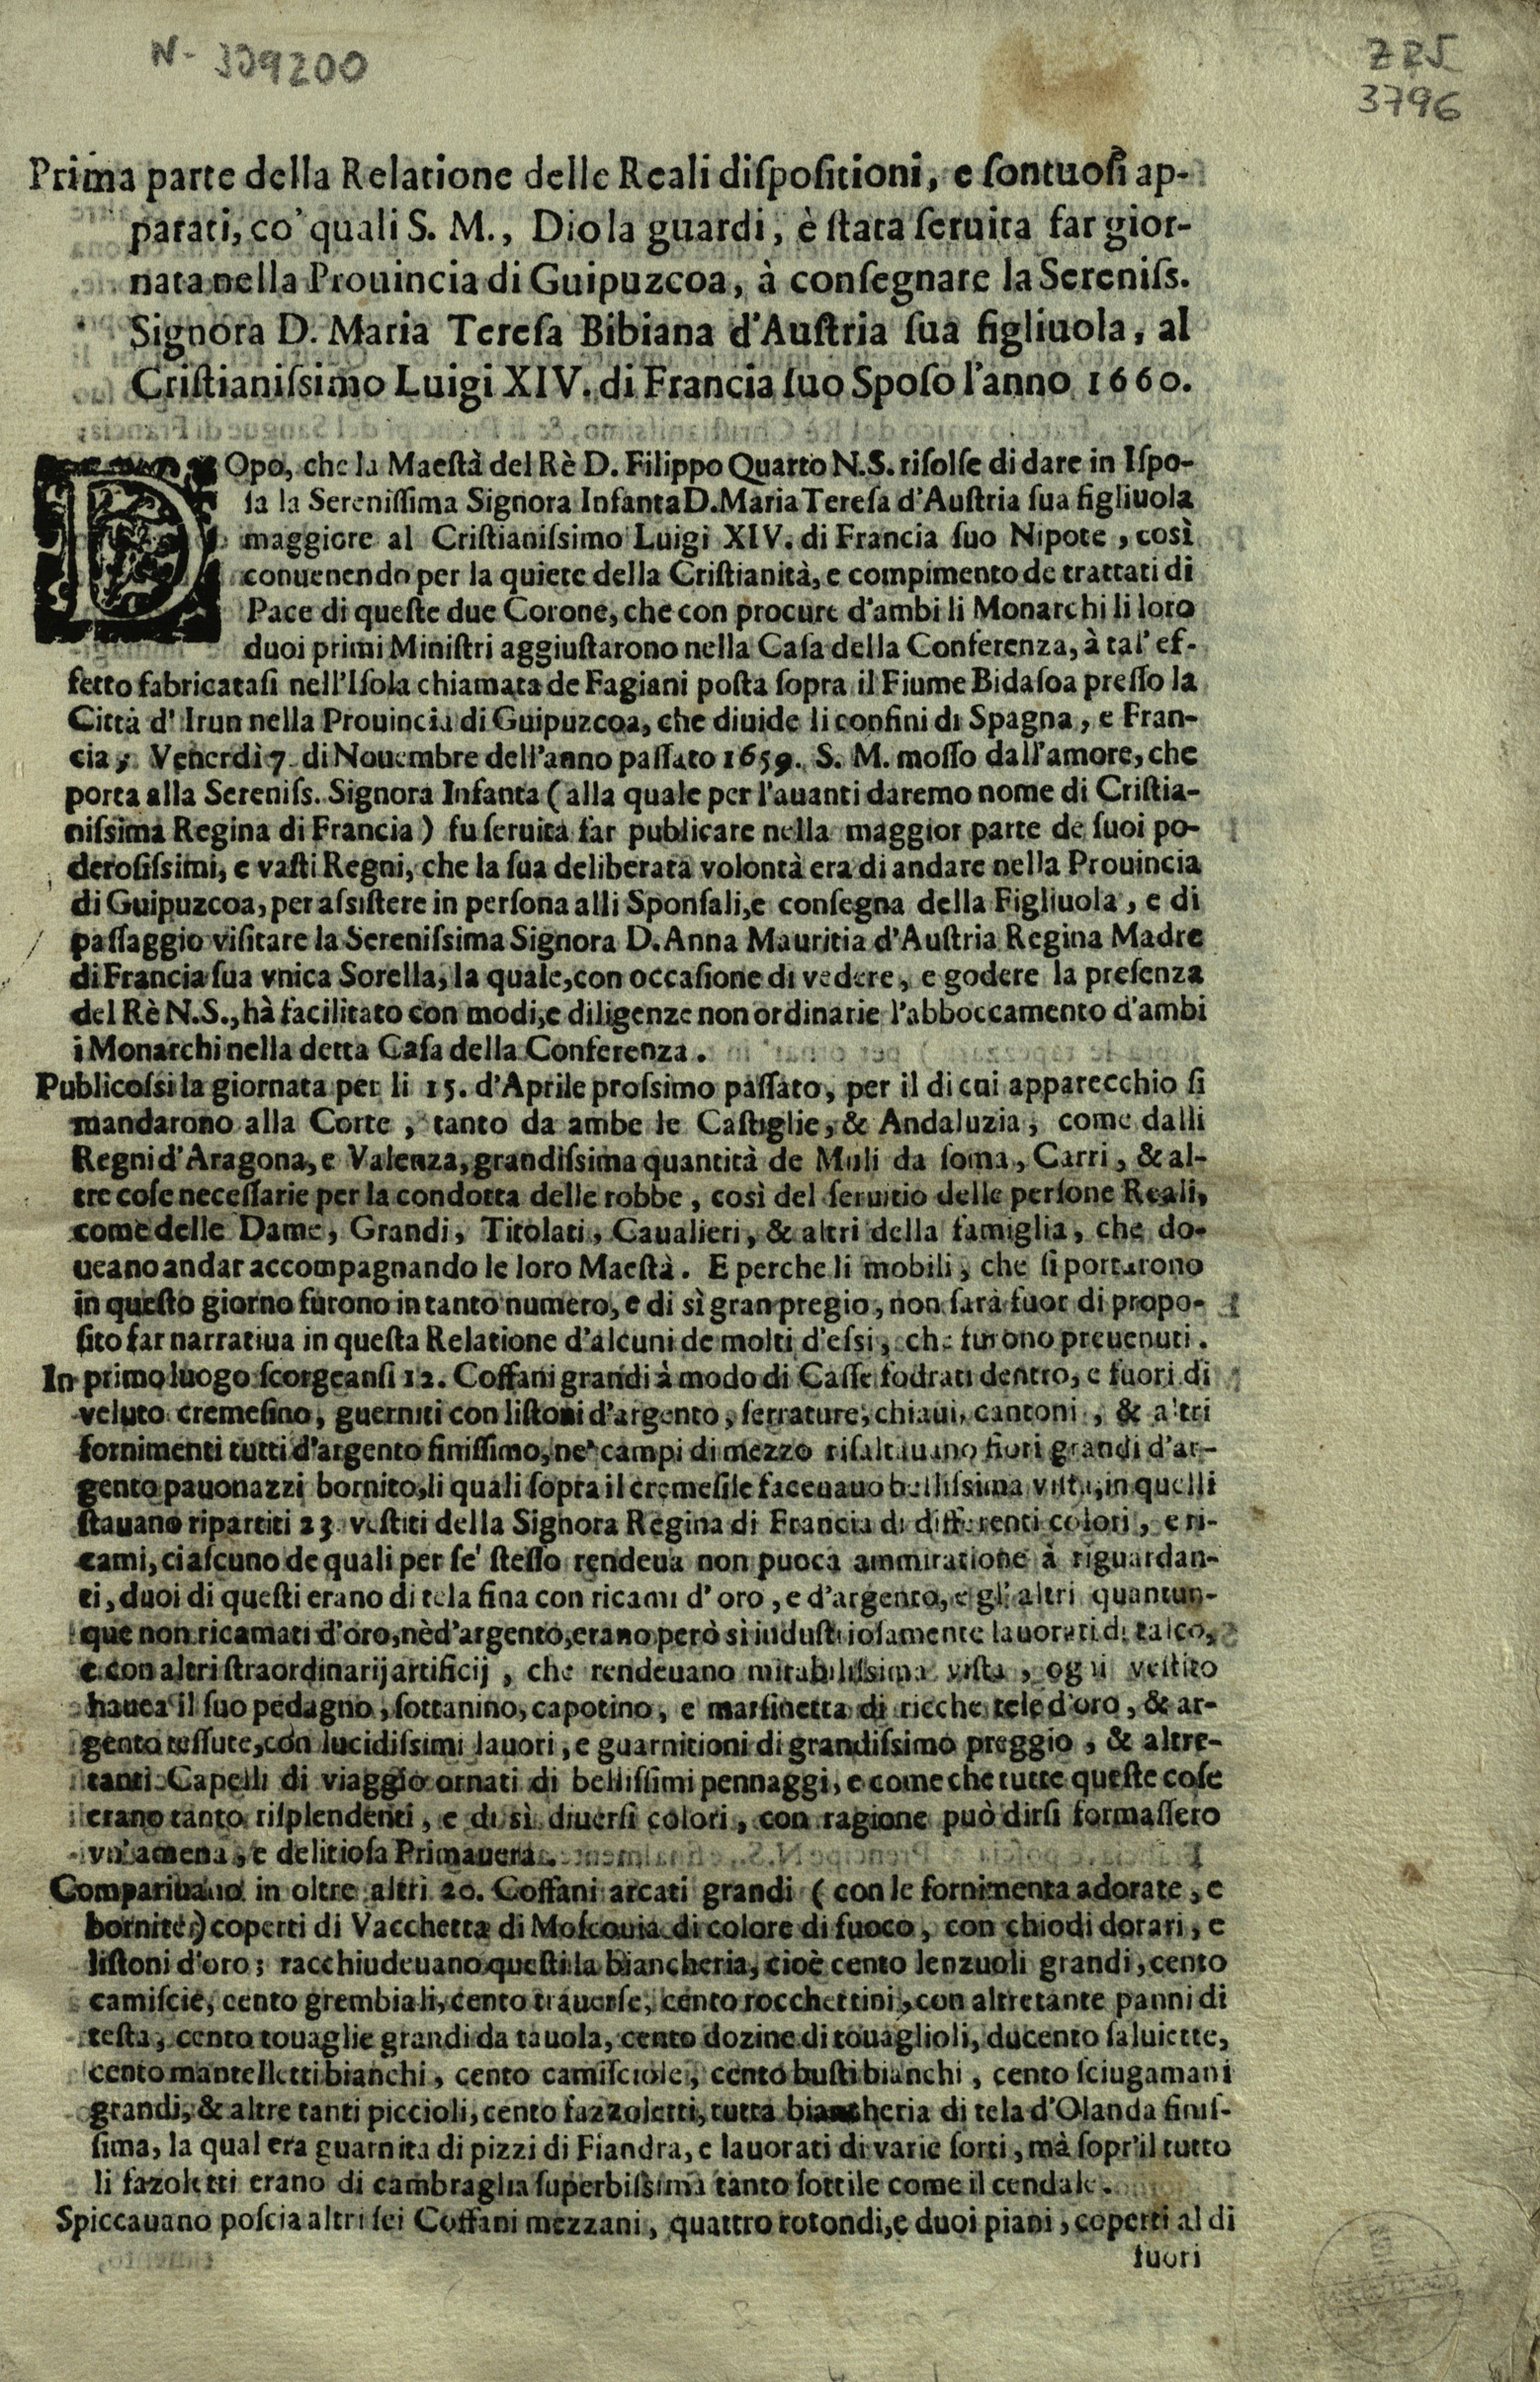 N- 309200
ZRS
3796
Prima parte della Relatione delle Reali dispositioni, e sontuosi ap-
parati, co' quali S. M., Dio la guardi, è stata seruita far gior-
nata nella Prouincia di Guipuzcoa, à consegnare la Sereniss.
Signora D. Maria Teresa Bibiana d'Austria sua figliuola, al
Cristianissimo Luigi XIV. di Francia suo Sposo l'anno 1660.
DOpo, che la Maestà del Rè D. Filippo Quarto N.S. risolse di dare in Ispo-
sa la Serenissima Signora Infanta D. Maria Teresa d'Austria sua figliuola
maggiore al Cristianissimo Luigi XIV. di Francia suo Nipote, così
conuenendo per la quiete della Cristianità, e compimento de trattati di
Pace di queste due Corone, che con procure d'ambi li Monarchi li loro
duoi primi Ministri aggiustarono nella Casa della Conferenza, à tal' ef-
fetto fabricatasi nell'Isola chiamata de Fagiani posta sopra il Fiume Bidasoa presso la
Città d' Irun nella Prouincia di Guipuzcoa, che diuide li confini di Spagna, e Fran-
cia; Venerdì 7. di Nouembre dell'anno passato 1659. S. M. mosso dall'amore, che
porta alla Sereniss. Signora Infanta (alla quale per l'auanti daremo nome di Cristia-
nissima Regina di Francia) fu seruita far publicare nella maggior parte de suoi po-
derosissimi, e vasti Regni, che la sua deliberata volontà era di andare nella Prouincia
di Guipuzcoa, per assistere in persona alli Sponsali, e consegna della Figliuola, e di
passaggio visitare la Serenissima Signora D. Anna Mauritia d'Austria Regina Madre
di Francia sua vnica Sorella, la quale, con occasione di vedere, e godere la presenza
del Rè N.S., hà facilitato con modi, e diligenze non ordinarie l'abboccamento d'ambi
i Monarchi nella detta Casa della Conferenza.
Publicossi la giornata per li 15. d'Aprile prossimo passato, per il di cui apparecchio si
mandarono alla Corte, tanto da ambe le Castiglie, & Andaluzia, come dalli
Regni d'Aragona, e Valenza, grandissima quantità de Muli da soma, Carri, & al-
tre cose necessarie per la condotta delle robbe, così del seruitio delle persone Reali,
come delle Dame, Grandi, Titolati, Caualieri, & altri della famiglia, che do-
ueano andar accompagnando le loro Maestà. E perche li mobili, che si portarono
in questo giorno furono in tanto numero, e di sì gran pregio, non sarà fuor di propo-
sito far narratiua in questa Relatione d'alcuni de molti d'essi, che furono preuenuti.
In primo luogo scorgeansi 12. Coffani grandi à modo di Casse fodrati dentro, e fuori di
veluto cremesino, guerniti con listoni d'argento, serrature, chiaui, cantoni, & altri
fornimenti tutti d'argento finissimo, ne' campi di mezzo risaltauano fiori grandi d'ar-
gento pauonazzi bornito, li quali sopra il cremesile faceuauo bellissima vista, in quelli
stauano ripartiti 23. vestiti della Signora Regina di Francia di differenti colori, e ri-
cami, ciascuno de quali per se' stesso rendeua non puoca ammiratione à riguardan-
ti, duoi di questi erano di tela fina con ricami d' oro, e d'argento, e gl' altri quantun-
que non ricamati d'oro, nè d'argento, erano però sì industriosamente lauorati di talco,
e con altri straordinarij artificij, che rendeuano mirabilissima vista, ogni vestito
hauea il suo pedagno, sottanino, capotino, e marsinetta di ricche tele d'oro, & ar-
gento tessute, con lucidissimi lauori, e guarnitioni di grandissimo preggio, & altre-
tanti Capelli di viaggio ornati di bellissimi pennaggi, e come che tutte queste cose
erano tanto risplendenti, e di sì diuersi colori, con ragione può dirsi formassero
vn' amena, e delitiosa Primauera.
Compariuano in oltre altri 20. Coffani arcati grandi (con le fornimenta adorate, e
bornite) coperti di Vacchetta di Moscouia di colore di fuoco, con chiodi dorari, e
listoni d'oro; racchiudeuano questi la biancheria, cioè cento lenzuoli grandi, cento
camiscie, cento grembiali, cento trauerse, cento rocchettini, con altretante panni di
testa, cento touaglie grandi da tauola, cento dozine di touaglioli, ducento saluiette,
cento mantelletti bianchi, cento camisciole, cento busti bianchi, cento sciugamani
grandi, & altre tanti piccioli, cento fazzoletti, tutta biancheria di tela d'Olanda finis-
sima, la qual era guarnita di pizzi di Fiandra, e lauorati di varie sorti, mà sopr'il tutto
li fazoletti erano di cambraglia superbissima tanto sottile come il cendale.
Spiccauano poscia altri sei Coffani mezzani, quattro rotondi, e duoi piani, coperti al di
fuori